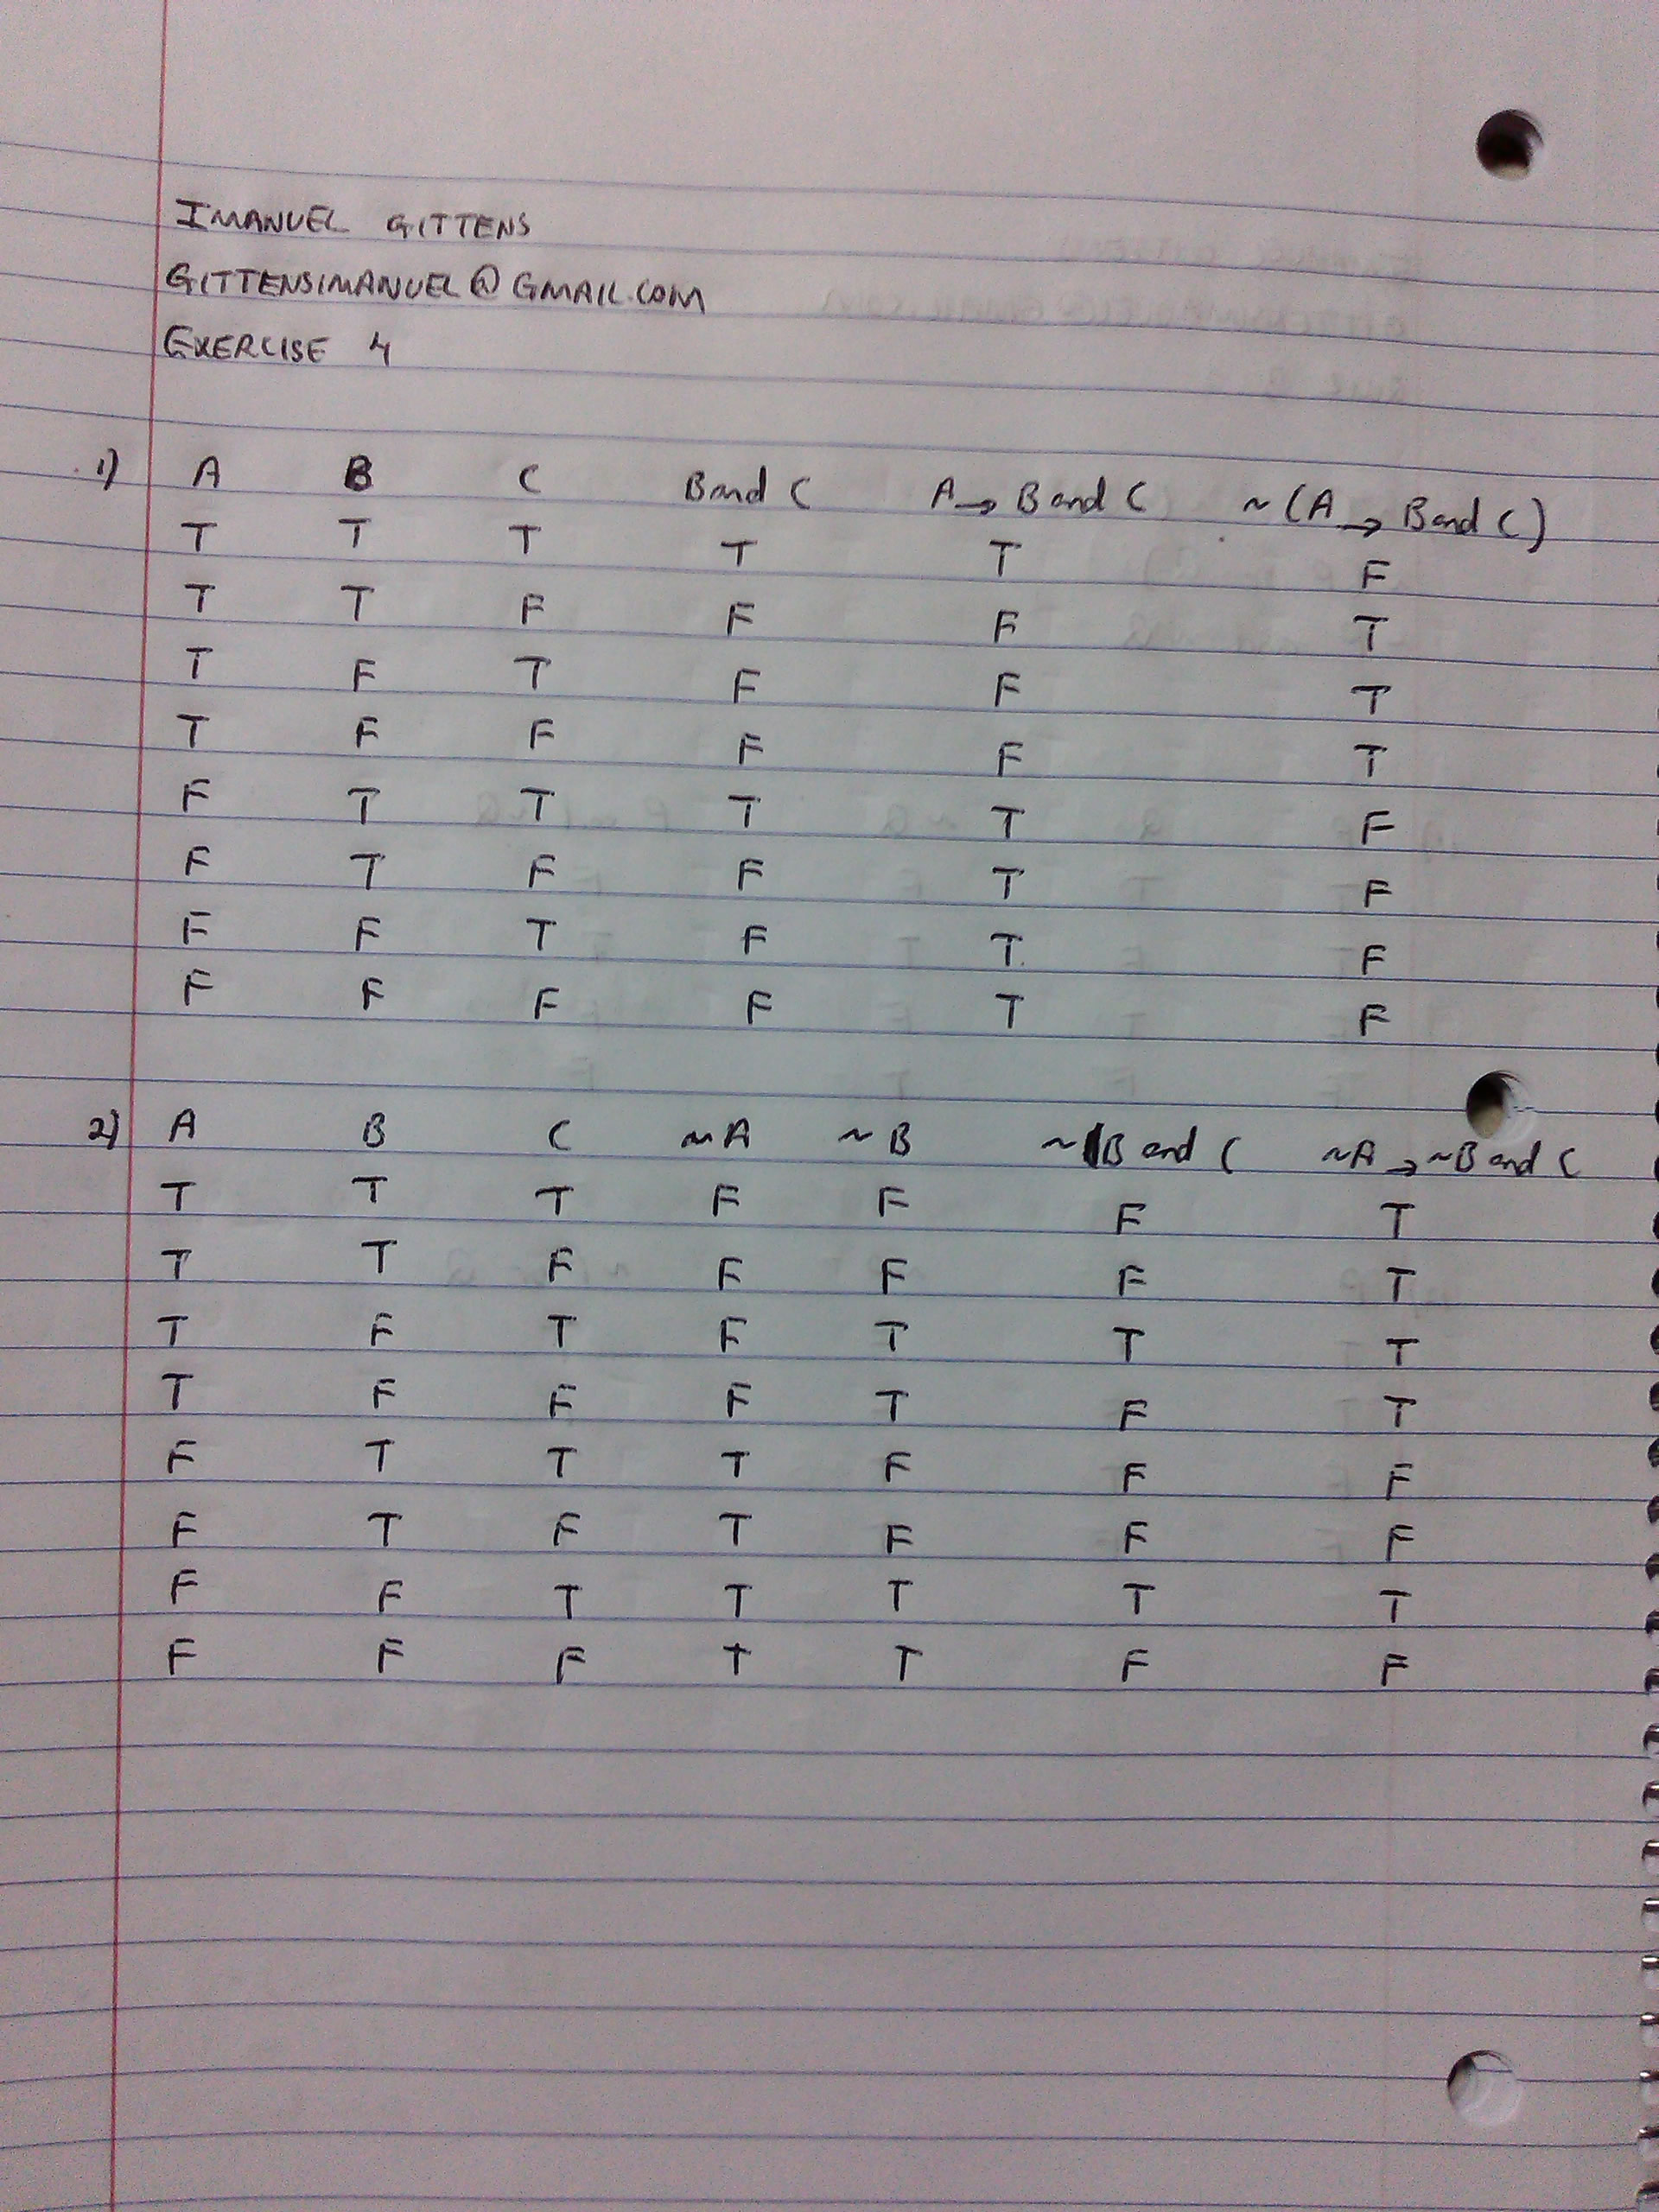 IMANUEL GITTENS
GITTENSIMANUEL@GMAIL.COM
EXERCISE 4
1) A B C B and C A → B and C ~(A → B and C)
T T T T T F
T T F F F T
T F T F F T
T F F F F T
F T T T T F
F T F F T F
F F T F T. F
F F F F T F
2) A B C ~A ~B ~B and C ~A → ~B and C
T T T F F F T
T T F F F F T
T F T F T T T
T F F F T F T
F T T T F F F
F T F T F F F
F F T T T T T
F F F T T F F